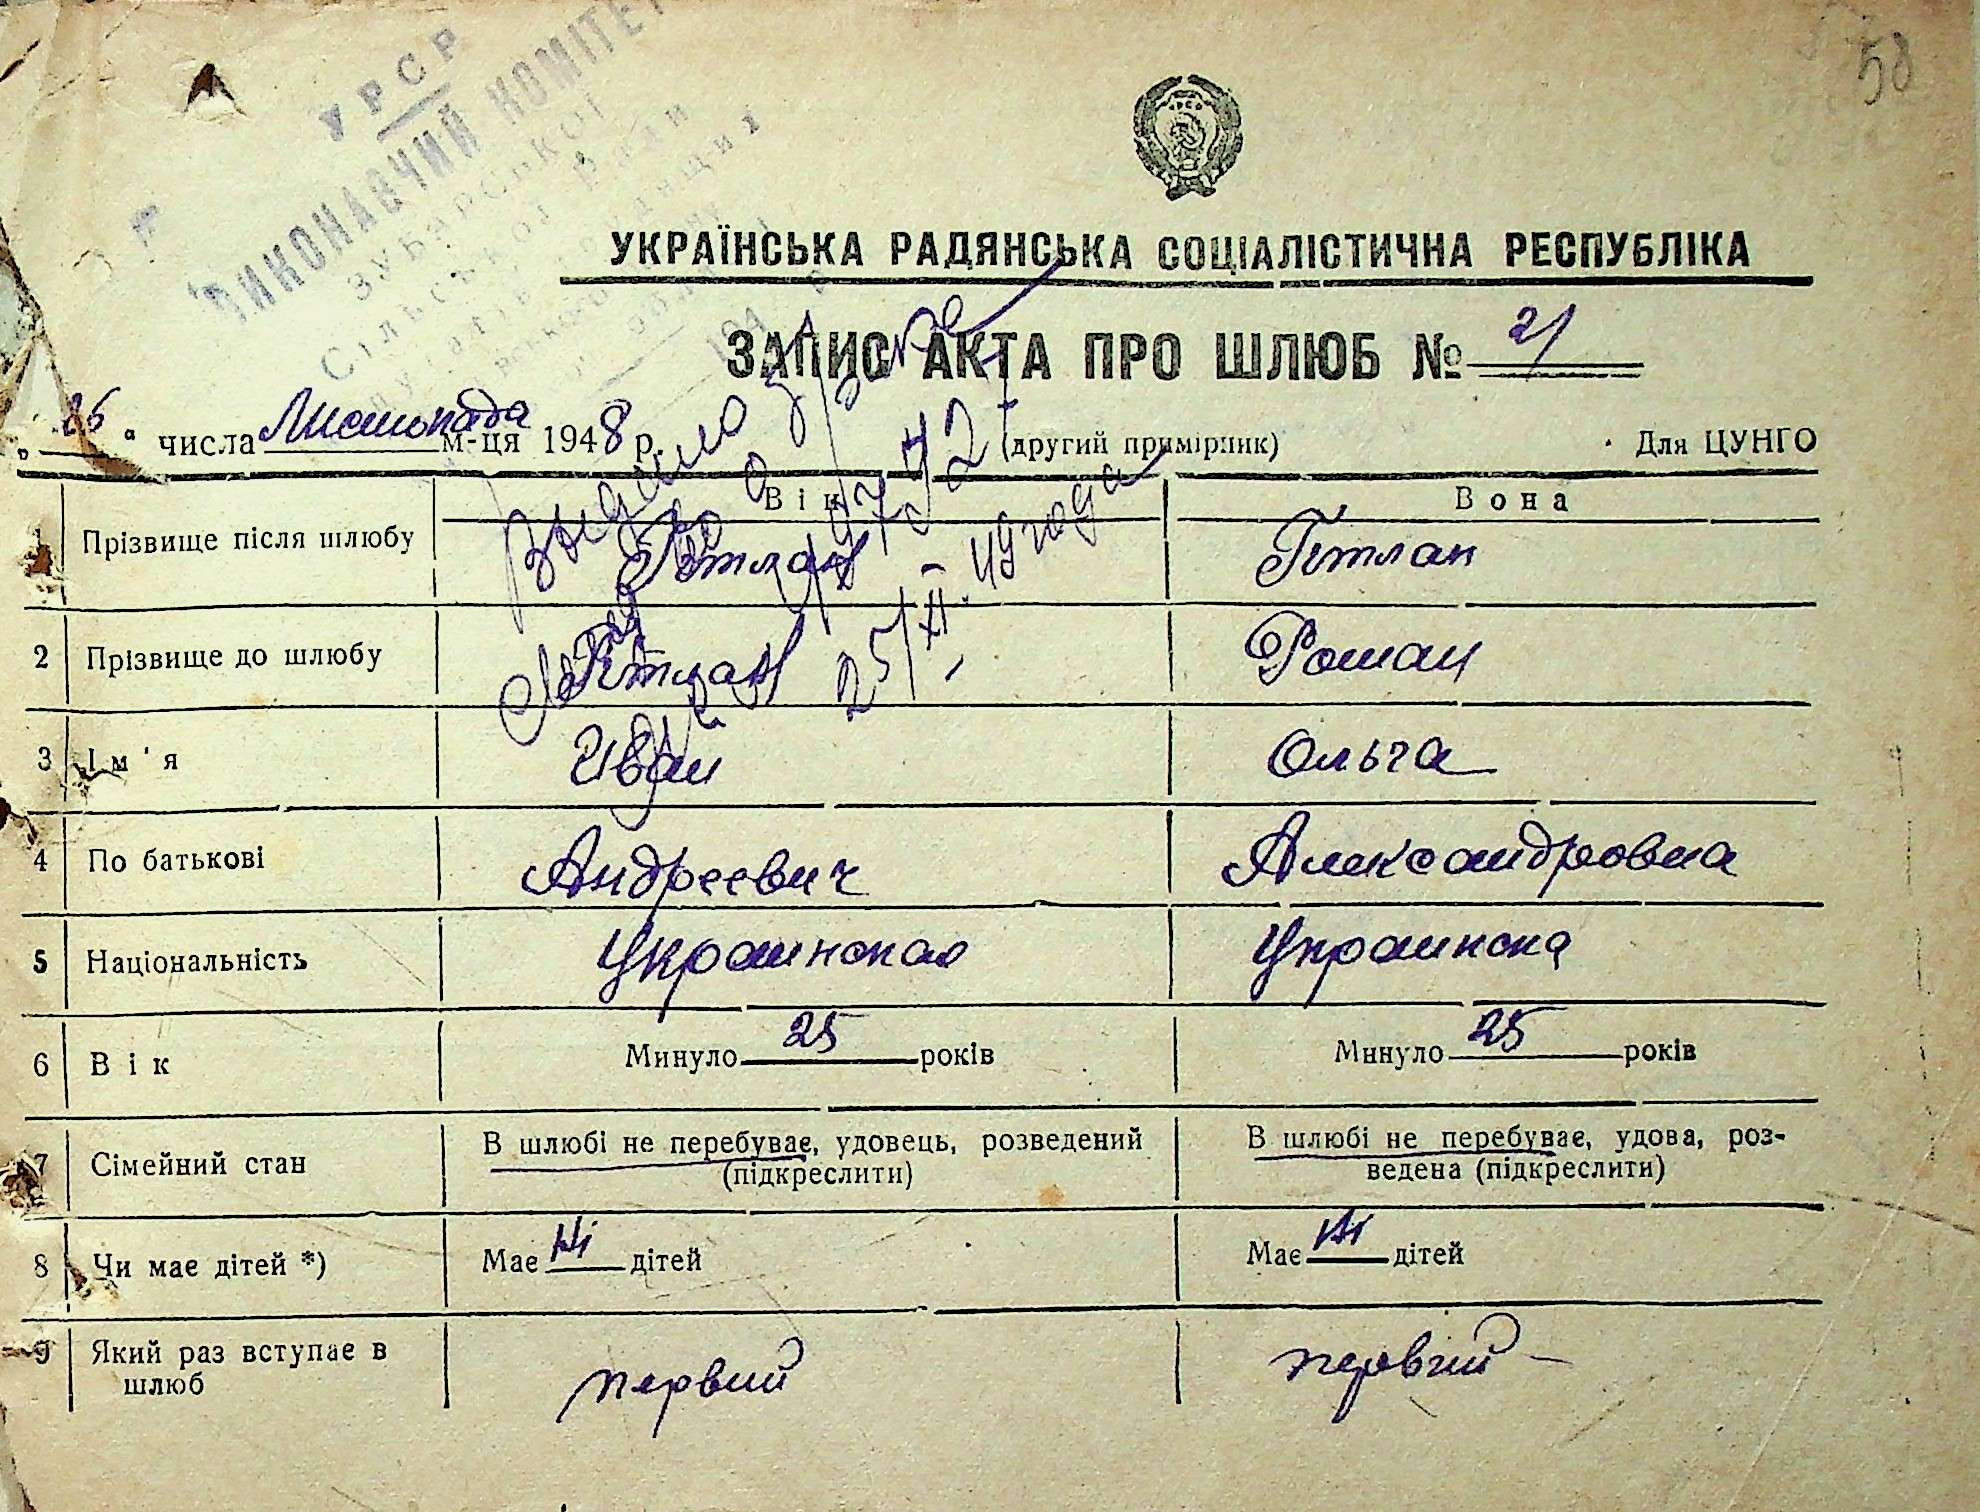 58
УРСР
ВИКОНАВЧИЙ КОМІТЕТ
ЗУБАРСЬКОЇ
Сільської Ради
УКРАЇНСЬКА РАДЯНСЬКА СОЦІАЛІСТИЧНА РЕСПУБЛІКА
ЗАПИС АКТА ПРО ШЛЮБ № 21
„26“ числа Листопада м-ця 1948 р. (другий примірник) Для ЦУНГО
25/XII. 49 года
Він Вона
1 Прізвище після шлюбу Гетлан Гетлан
2 Прізвище до шлюбу Гетлан Роман
3 Ім'я Иван Ольга
4 По батькові Андреевич Александровна
5 Національність Украинская Украинска
6 Вік Минуло 25 років Минуло 25 років
7 Сімейний стан В шлюбі не перебуває, удовець, розведений (підкреслити) В шлюбі не перебуває, удова, роз-
ведена (підкреслити)
8 Чи має дітей *) Має ні дітей Має ні дітей
9 Який раз вступає в шлюб первий первий